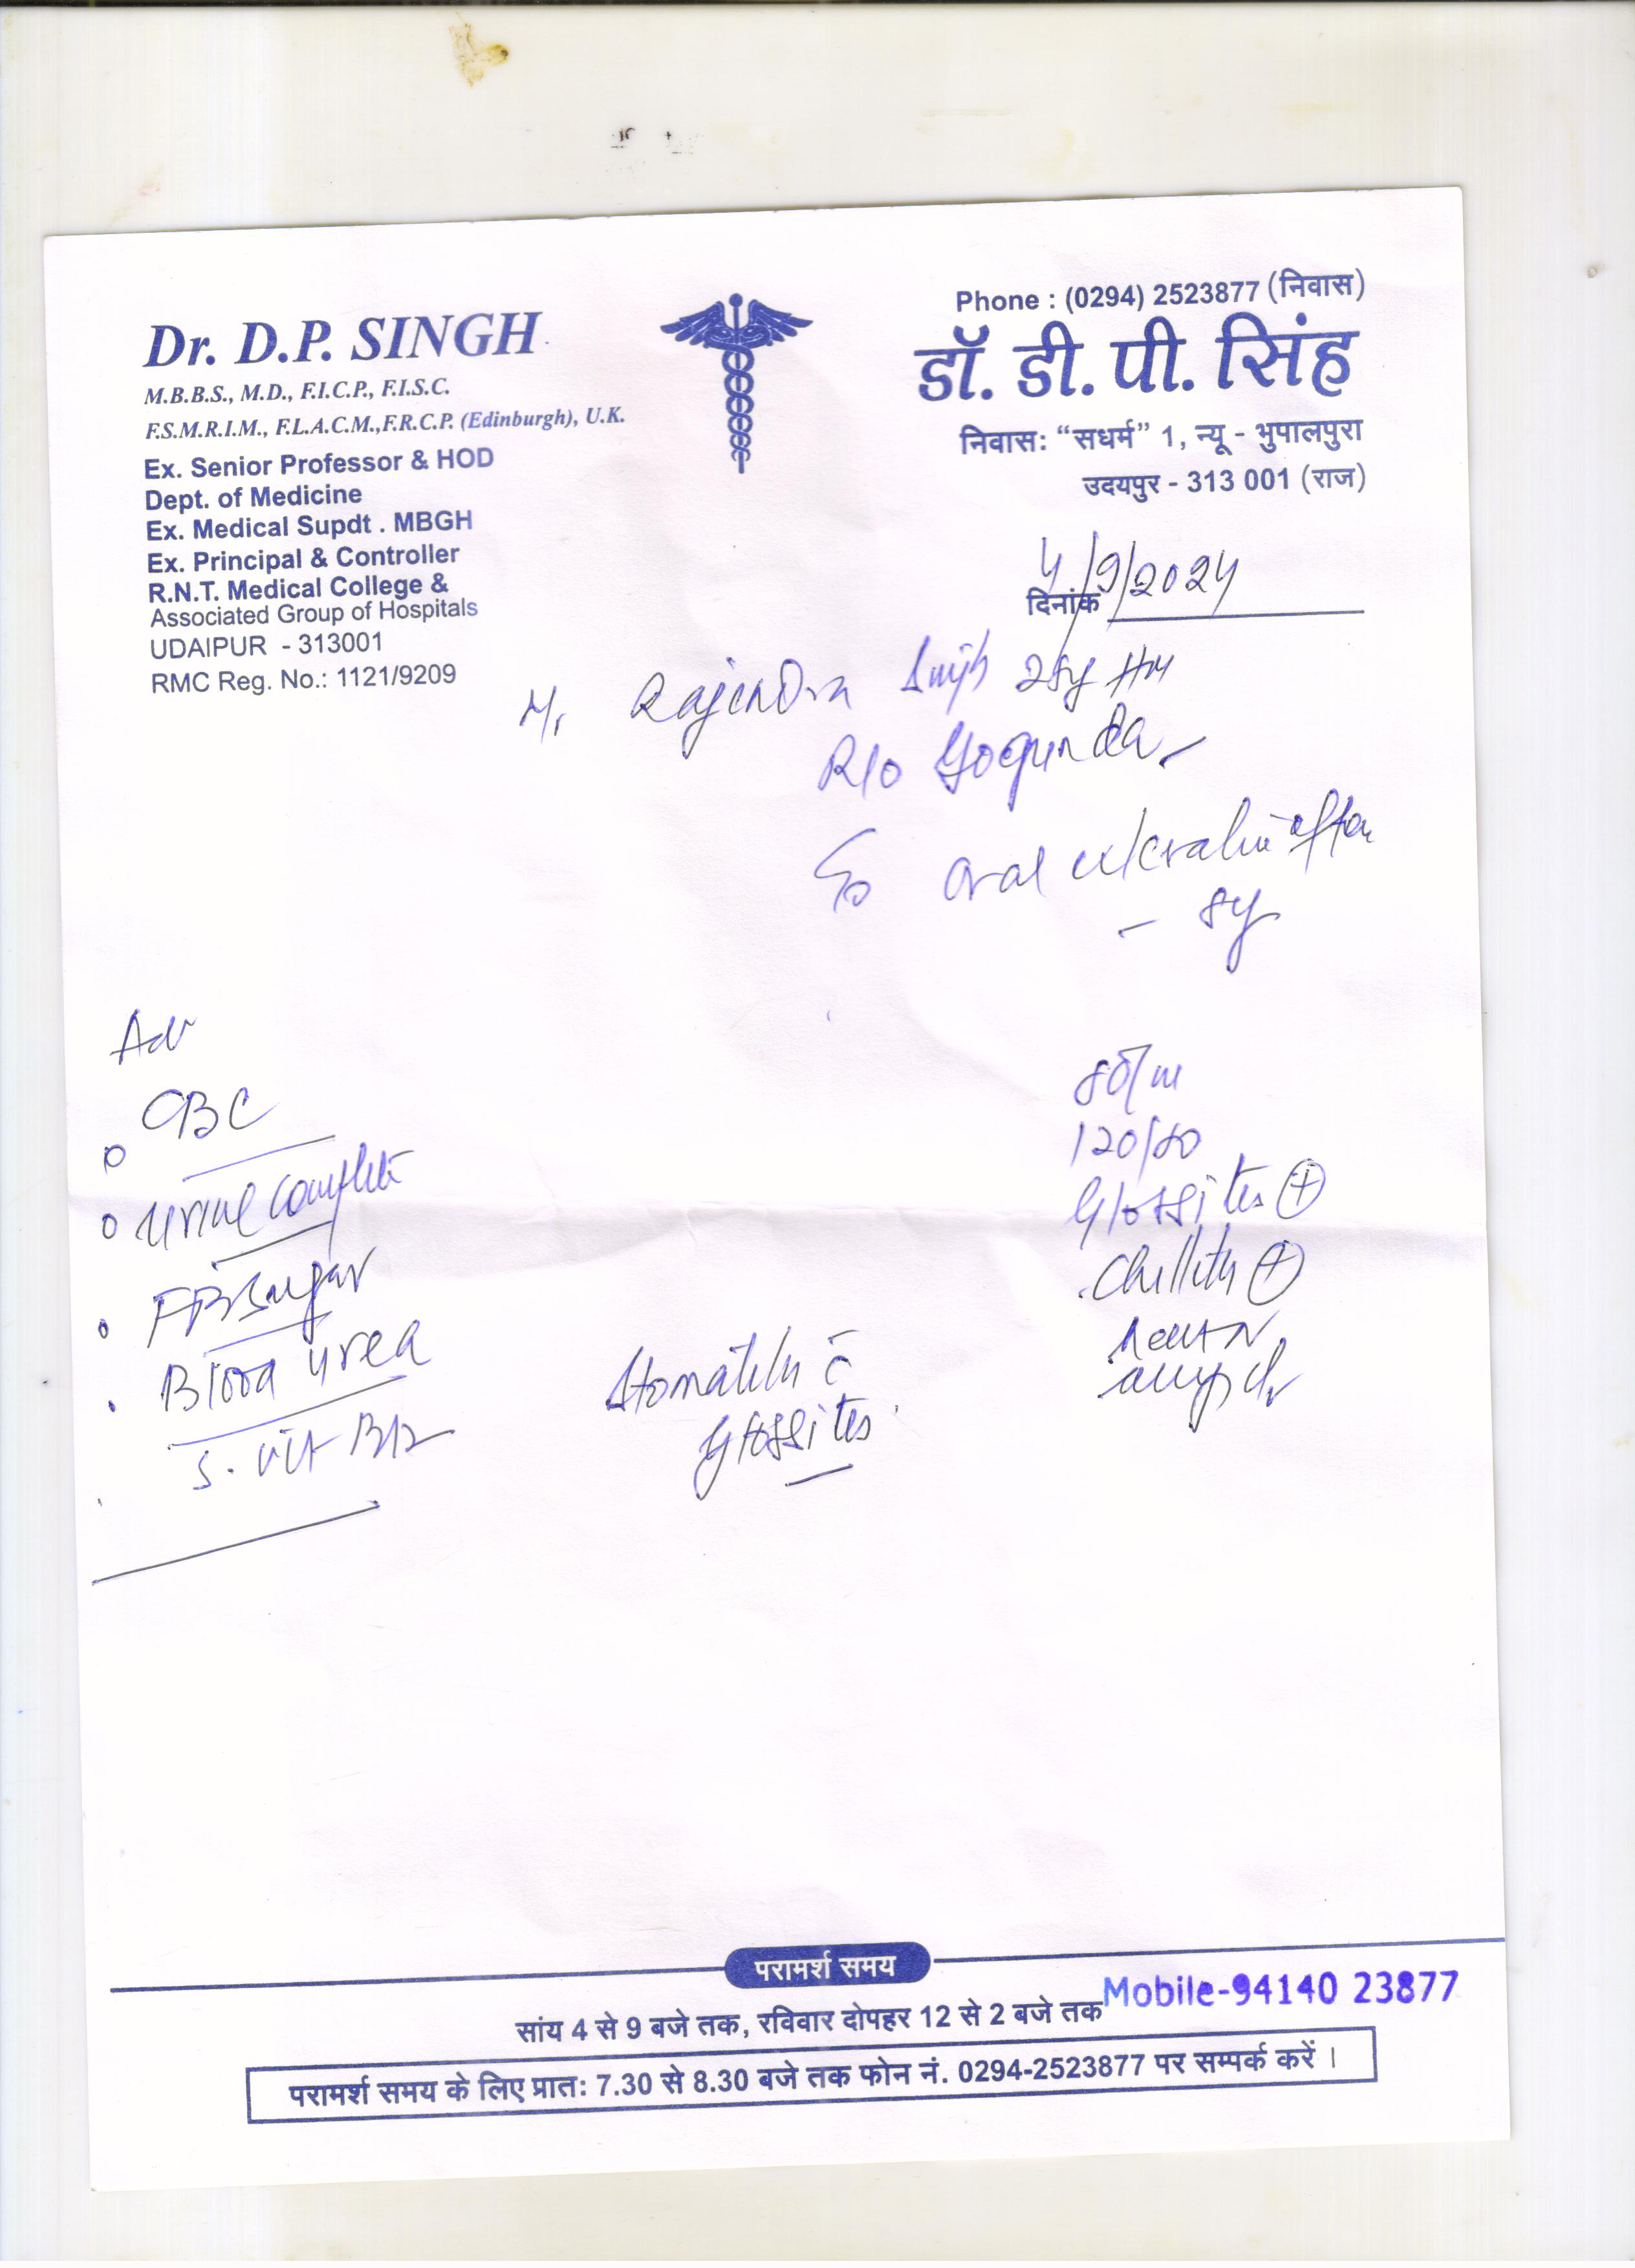 Phone : (0294) 2523877 (निवास)
Dr. D.P. SINGH
M.B.B.S., M.D., F.I.C.P., F.I.S.C.
F.S.M.R.I.M., F.L.A.C.M.,F.R.C.P. (Edinburgh), U.K.
Ex. Senior Professor & HOD
Dept. of Medicine
Ex. Medical Supdt . MBGH
Ex. Principal & Controller
R.N.T. Medical College &
Associated Group of Hospitals
UDAIPUR - 313001
RMC Reg. No.: 1121/9209
डॉ. डी. पी. सिंह
निवास: “सधर्म” 1, न्यू - भुपालपुरा
उदयपुर - 313 001 (राज)
दिनांक 4/9/2024
Mr Rajendra Singh
R/o Gogunda
Oral ulceration often
Adv
CBC
Urine complete
FBSugar
Blood Urea
S. Vit B12
120/80
Glossites +
Stomatitis c̄
Glossites
परामर्श समय
सांय 4 से 9 बजे तक, रविवार दोपहर 12 से 2 बजे तक
Mobile-94140 23877
परामर्श समय के लिए प्रात: 7.30 से 8.30 बजे तक फोन नं. 0294-2523877 पर सम्पर्क करें ।